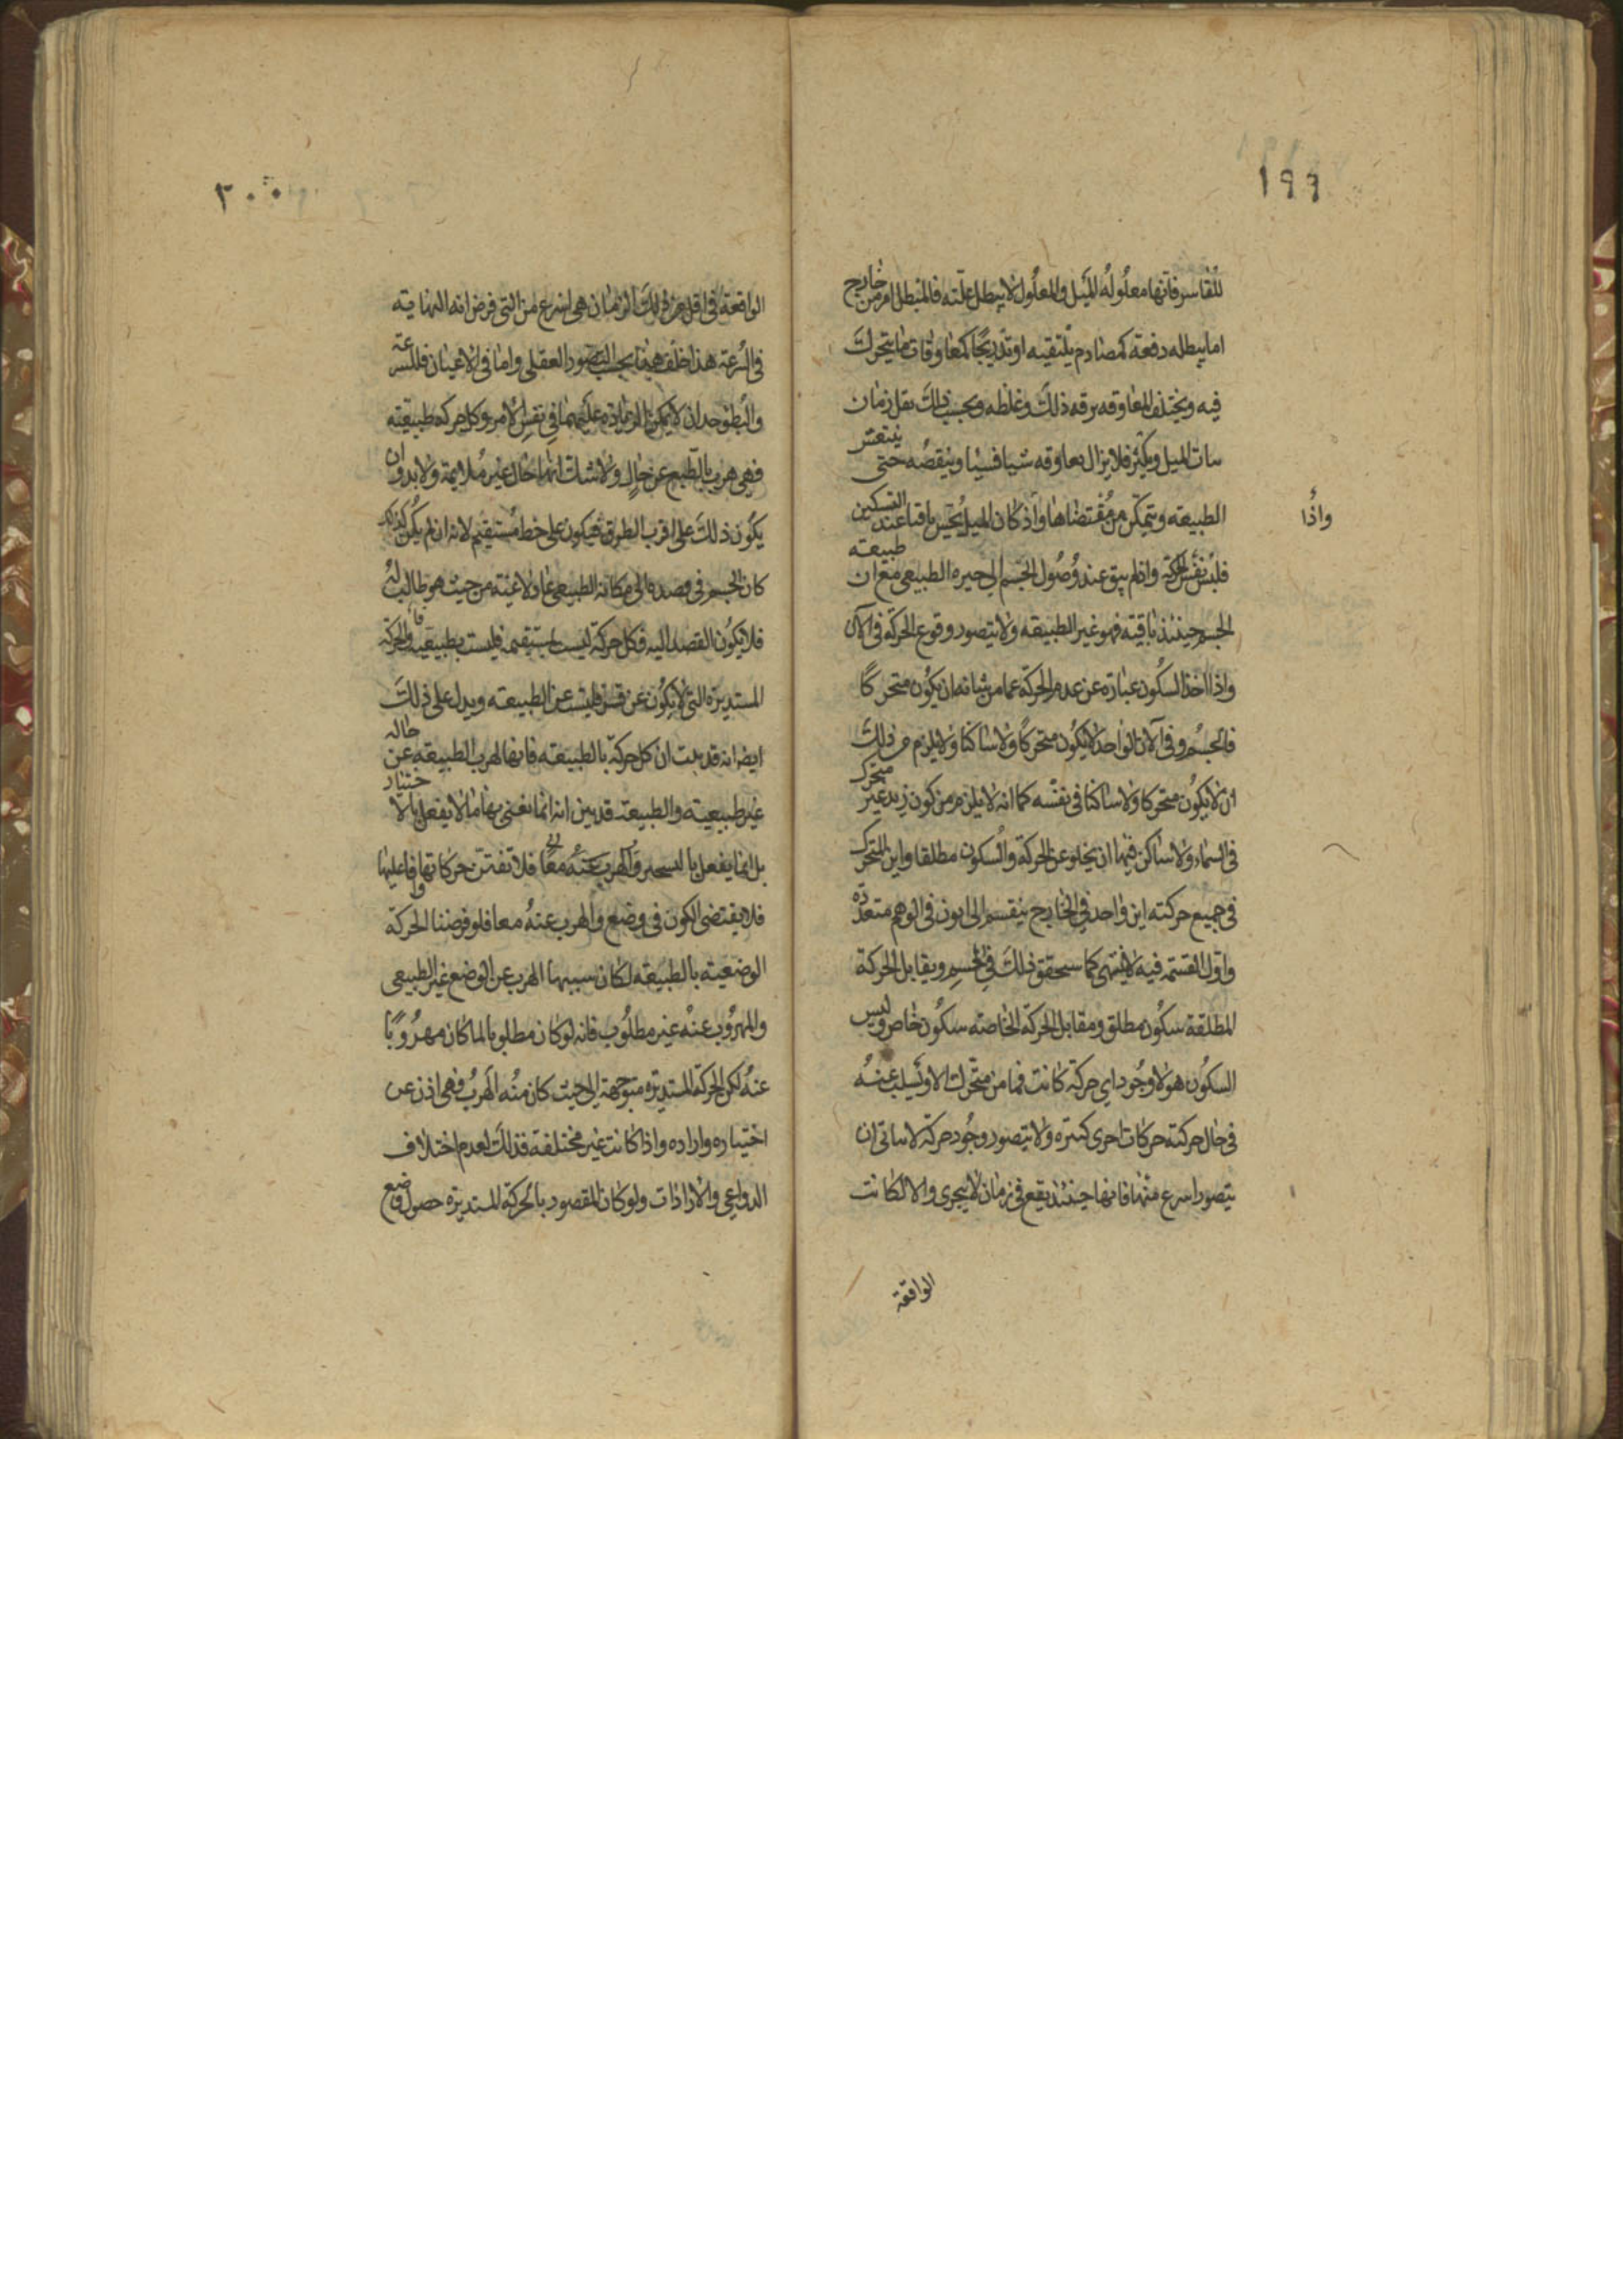 ١٩٩
للقاسر فانها معلوله للميل والمعلول لا يبطل علته فالمبطل امر من خارج
اما يبطله دفعة كمصادم يلتقيه او تدريجًا كمعاوقات ما يتحرك
فيه ويختلف المعاوقه برقه ذلك وغلظه وبحسب ذلك يقل زمان
الميل ويكثر فلا يزال معاوقه شيا فشيا وينقصه حتى
الطبيعه ويتمكن من مقتضاها واذ كان الميل يحس باقيا عند التسكين
واذا
فليس نفس الحركة واذ لم يبق عند وصول الجسم الى حيزه الطبيعى مع ان طبيعته
الجسم حينئذ باقيته فهو غير الطبيعه ولا يتصور وقوع الحركة فى الآن
واذا اخذ السكون عبارة عن عدم الحركة عما من شانه ان يكون متحركًا
فالجسم فى الآن الواحد لا يكون متحركًا ولا ساكنا ولا يلزم من ذلك
ان لا يكون متحركا ولا ساكنا فى نفسه كما انه لا يلزم من كون زيد غير متحرك
فى السماء ولا ساكن فيها ان يخلو عن الحركة والسكون مطلقا واين المتحرك
فى جميع حركته اين واحد فى الخارج ينقسم الى ايون فى الوهم متعدده
القسمه فيه لا ينتهى كما سيحقق ذلك فى الجسم ويقابل الحركة
المطلقة سكون مطلق ومقابل الحركة الخاصه سكون خاص وليس
السكون هو لا وجود اى حركة كانت فما من متحرك الا وتسلب عنه
فى حال حركته حركات اخرى كثيره ولا يتصور وجود حركة لا يتاتى ان
يتصور اسرع منها فانها حينئذ يقع فى زمان لا يتجزى والا لكانت
الواقعة
٢٠٠
الواقعة فى اقل من ذلك الزمان هى اسرع من التى فرض انه النهايته
فى السرعة هذا خلف هذا بحسب التصور العقلى واما فى الاعيان فللسرعة
والبطؤ حد ان لا يمكن الزيادة عليهما فى نفس الامر وكل حركه طبيعيته
فهى هرب بالطبع عن حال ولا شك انها حال غير ملايمة ولا بد وان
يكون ذلك على اقرب الطرق فيكون على خط مستقيم لانه ان لم يكن كذلك
كان الجسم فى قصده الى مكانه الطبيعى عادلا عنه من حيث هو طالب له
فلا يكون القصد اليه فكل حركة ليست بمستقيمه فليست بطبيعيه والحركة
المستديرة التى لا يكون عن قسر فليست عن الطبيعه ويدل على ذلك
ايضا انه قد ثبت ان كل حركة بالطبيعه فانها لهرب الطبيعه عن حاله
غير طبيعيته والطبيعة قد بين انه انما نعنى بها ما لا يفعل بالاختيار
بل انما يفعل بالتسخير فلا تفتن حركاتها وافاعليها
فلا يقتضى الكون فى وضع والهرب عنه معا فلو فرضنا الحركة
الوضعيته بالطبيعه لكان سببها الهرب عن الوضع غير الطبيعى
والمهروب عنه غير مطلوب فانه لو كان مطلوبا لما كان مهروبًا
عنه لكن الحركة المستديره متوجهة الى حيث كان منه الهرب فهى اذن عن
اختياره واراده واذا كانت غير مختلفة فذلك لعدم اختلاف
الدواعى والارادات ولو كان المقصود بالحركة المستديرة حصول وضع